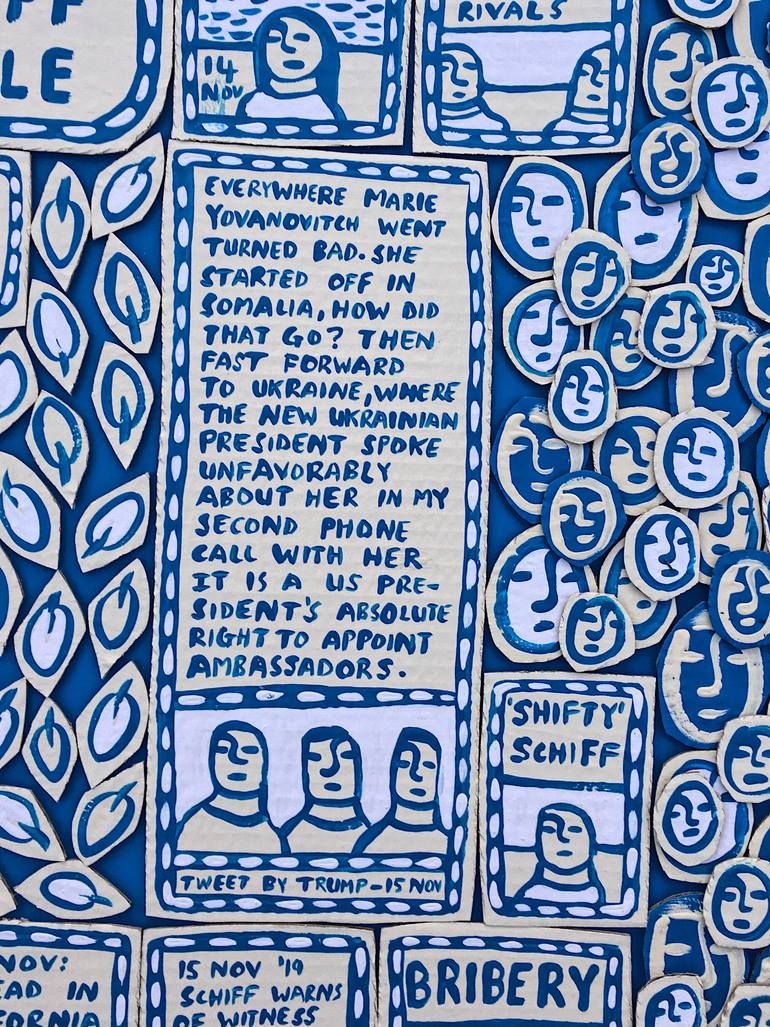 LE
14
NOV
RIVALS
EVERYWHERE MARIE
YOVANOVITCH WENT
TURNED BAD. SHE
STARTED OFF IN
SOMALIA, HOW DID
THAT GO? THEN
FAST FORWARD
TO UKRAINE, WHERE
THE NEW UKRAINIAN
PRESIDENT SPOKE
UNFAVORABLY
ABOUT HER IN MY
SECOND PHONE
CALL WITH HER
IT IS A US PRE-
SIDENT'S ABSOLUTE
RIGHT TO APPOINT
AMBASSADORS.
TWEET BY TRUMP - 15 NOV
'SHIFTY'
SCHIFF
NOV:
EAD IN
FORNIA
15 NOV '19
SCHIFF WARNS
OF WITNESS
BRIBERY